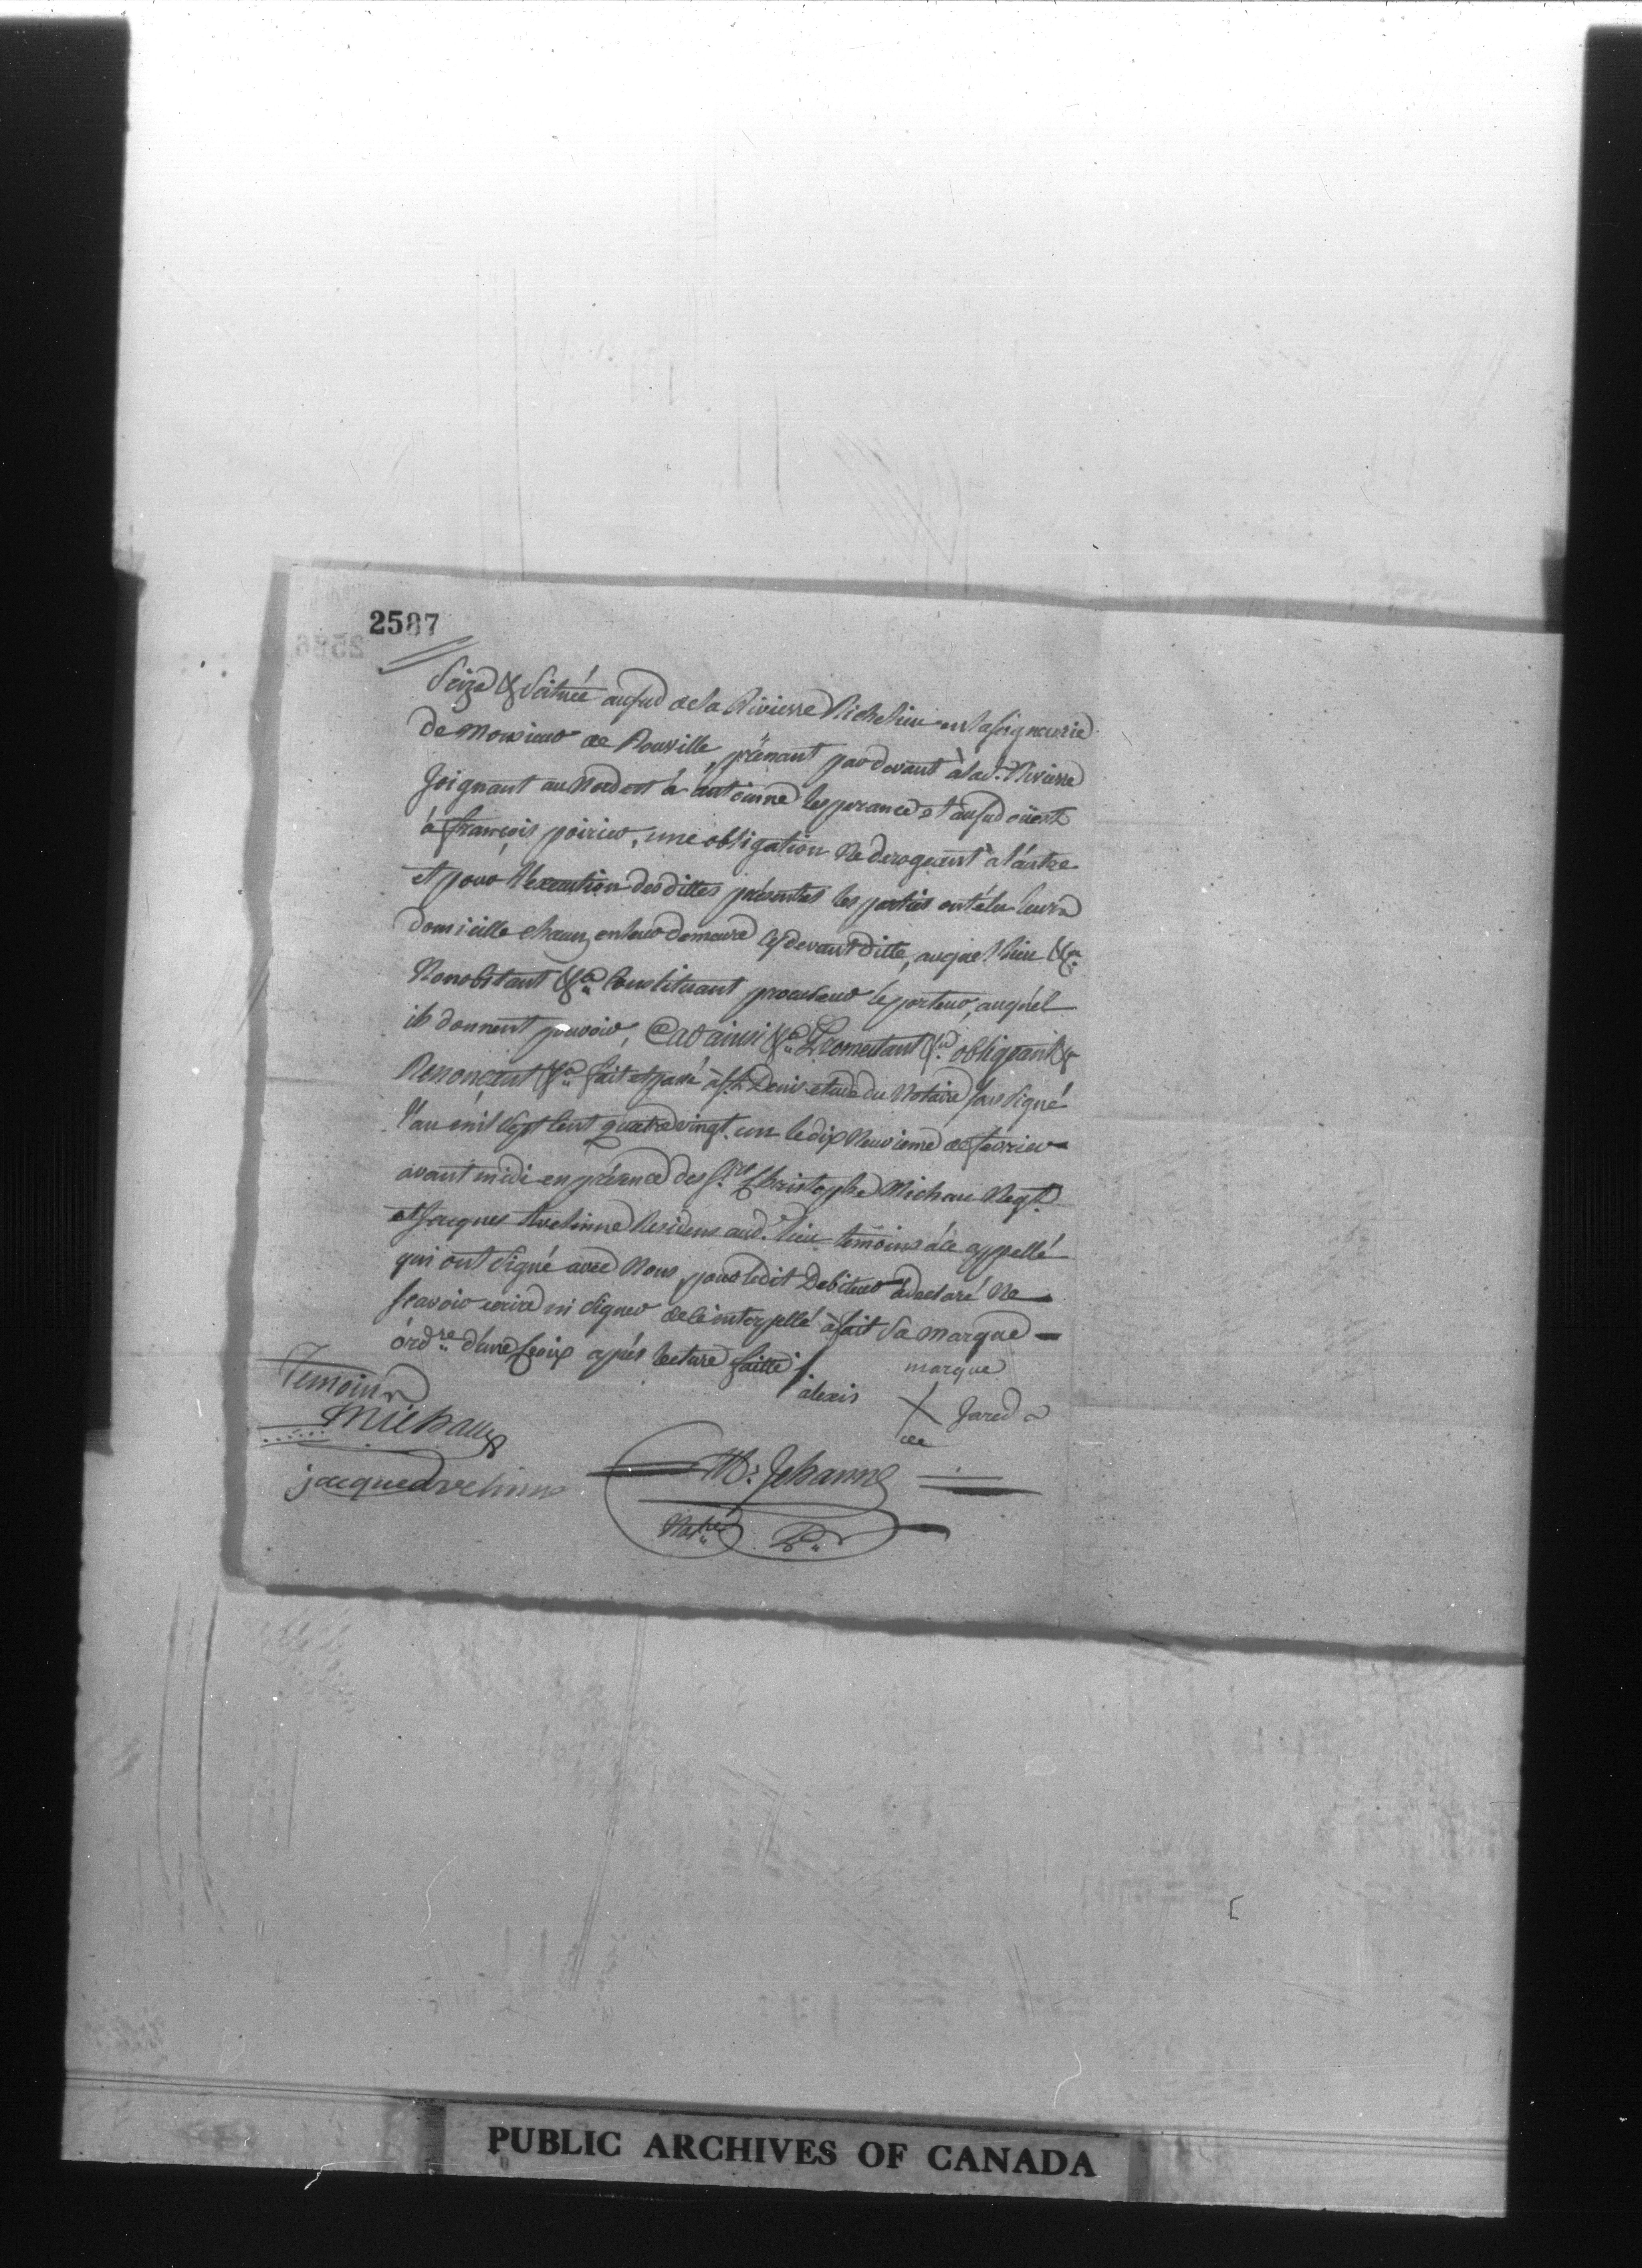 2587
Seize & Scituée au sud de la Rivierre Richelieu en la seigneurie
de Monsieur de Rouville, prenant par devant à lad. Rivierre
Joignant au Nord est à antoinne lesperance et au sud oüest
à françois poirier, une obligation Ne derogeant à l'autre
et pour l'execution des dittes présentes les parties ont élu leurs
domicille chacun en leur demeure cy devant ditte, auquel lieu &a
Nonobstant &a Constituant procureur le porteur, auquel
ils donnent pouvoir, Car ainsi &a Promettant &a obligeant &
Renonçant &a fait et passé à St. Denis etude du Notaire sous signé
l'an mil sept cent quatre vingt un le dix Neuvieme de fevrier
avant midi en présence des Srs Christophe Michau Negt.
et Jacques Avelinne Residens aud. lieu temoins à ce appellé
qui ont signé avec Nous, pour ledit Debiteur à declaré Ne
sçavoir ecrire ni signer de ce interpellé à fait sa marque
ordre d'une Croix après lecture faitte /
marque
alexis X Jared
de
Temoins
Michau
jacque avelinne
M: Jehanne
Notre P.
PUBLIC ARCHIVES OF CANADA